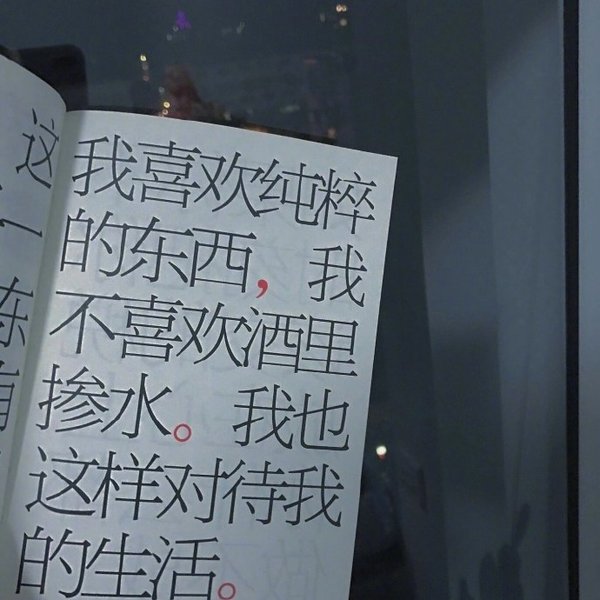 我喜欢纯粹
的东西，我
不喜欢酒里
掺水。我也
这样对待我
的生活。
这
一
东